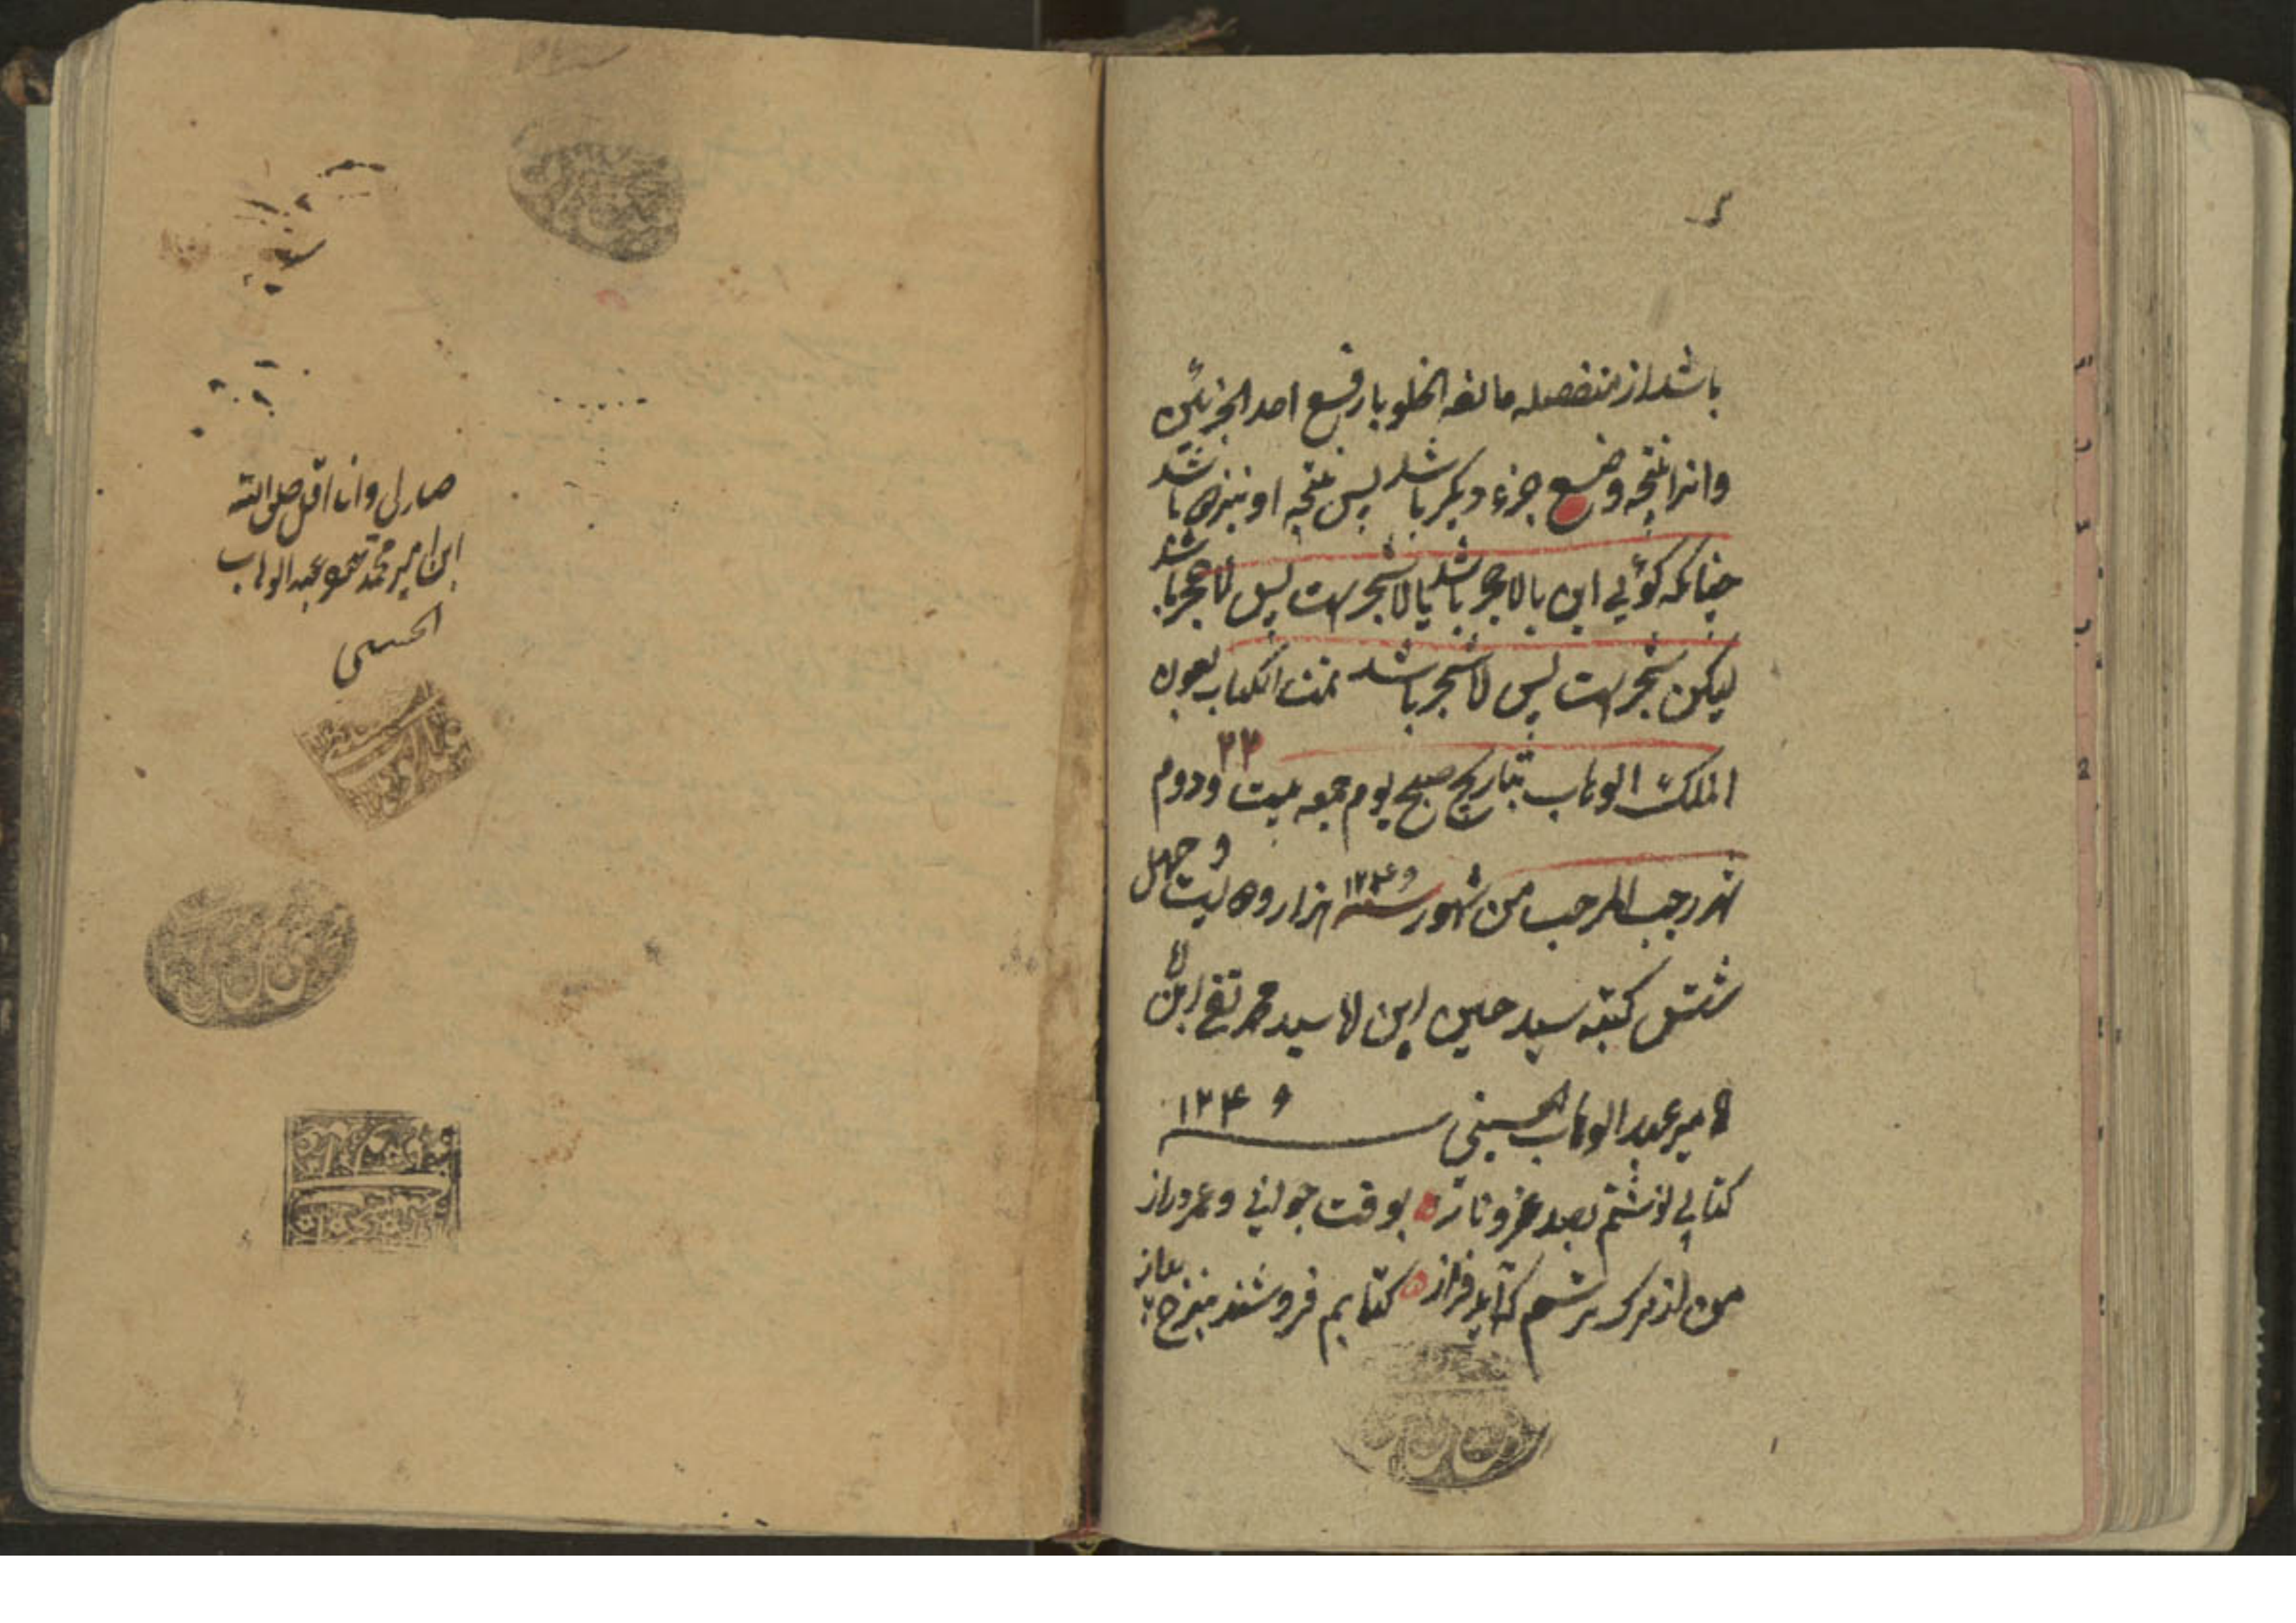 باشد از منفصله مانعه الخلو با رفع احد الجزئین
وانرا نتیجه وضع جزء دیکر باشد پس نتیجه او نیز باشد
چنانکه کوئی این یا لا حجر باشد یا لا شجر است پس لا حجر باشد
لیکن شجر است پس لا شجر باشد تمت الکتاب بعون
الملک الوهاب بتاریخ صبح یوم جمعه بیست ۲۲ ودوم
شهر رجب المرجب من شهور سنه ۱۲۴۶ هزار ودویست و چهل
ششش کتبه سید حسین ابن اقا سید محمد تقی ابن
میر عبد الوهاب الحسینی ۱۲۴۶
کتابی نوشتم بصد عز و ناز بوقت جوانی و عمر دراز
کتابم فروشند بنرخ پیاز
صار لی وانا اقل خلق الله
ابن امیر محمد عبد الوهاب
الحسینی